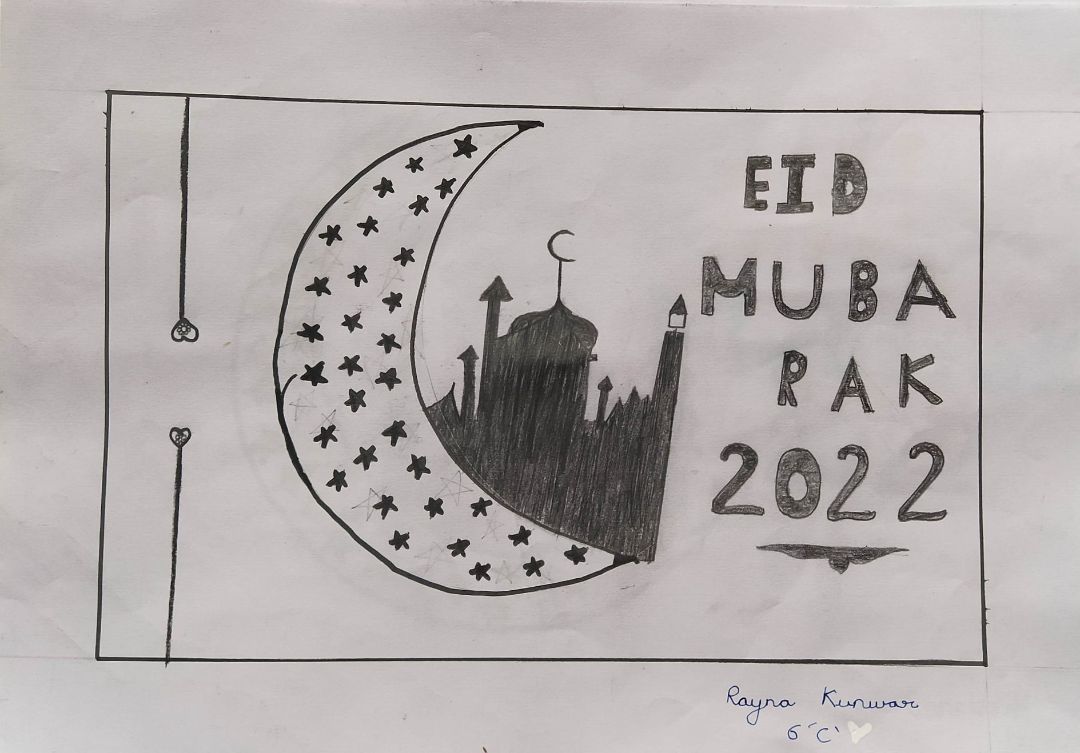 EID
MUBA
RAK
2022
Rayna Kunwar
6 'C'